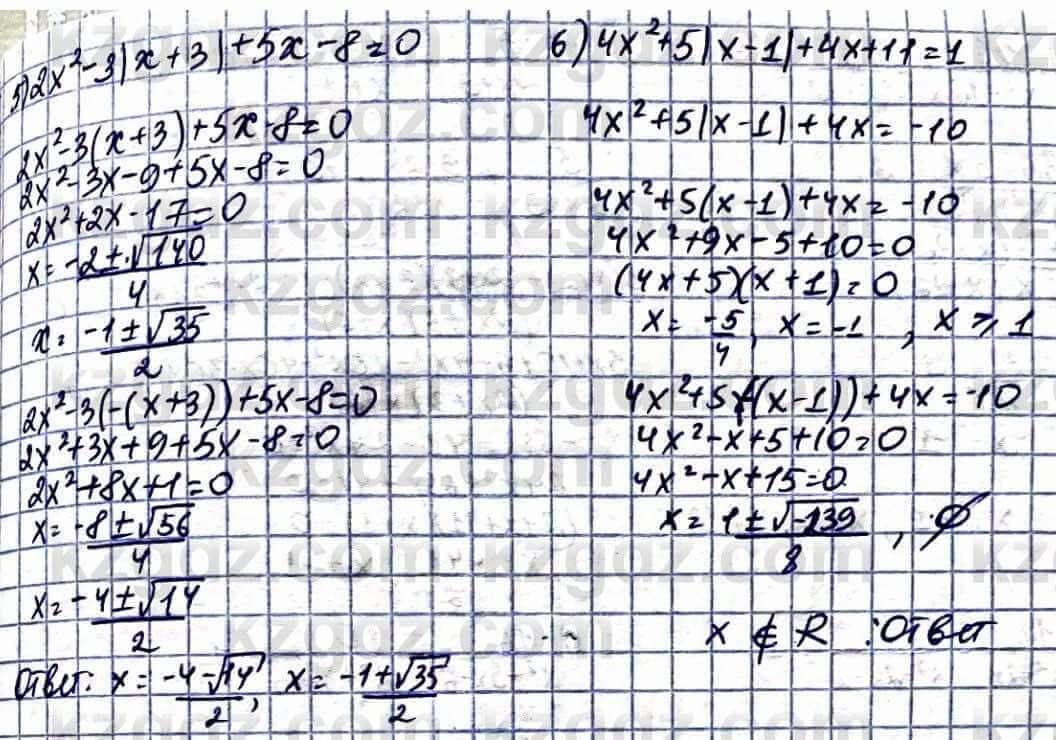 5) 2x² - 3|x + 3| + 5x - 8 = 0
2x² - 3(x + 3) + 5x - 8 = 0
2x² - 3x - 9 + 5x - 8 = 0
2x² + 2x - 17 = 0
x = -2 ± √140 / 4
x = -1 ± √35 / 2
2x² - 3(-(x + 3)) + 5x - 8 = 0
2x² + 3x + 9 + 5x - 8 = 0
2x² + 8x + 1 = 0
x = -8 ± √56 / 4
x = -4 ± √14 / 2
Ответ: x = -4 - √14 / 2, x = -1 + √35 / 2
6) 4x² + 5|x - 1| + 4x + 11 = 1
4x² + 5|x - 1| + 4x = -10
4x² + 5(x - 1) + 4x = -10
4x² + 9x - 5 + 10 = 0
(4x + 5)(x + 1) = 0
x = -5/4, x = -1, x ⩾ 1
4x² + 5(-(x - 1)) + 4x = -10
4x² - x + 5 + 10 = 0
4x² - x + 15 = 0
x = 1 ± √-139 / 8, ∅
x ∉ R :Ответ
kzgdz.com